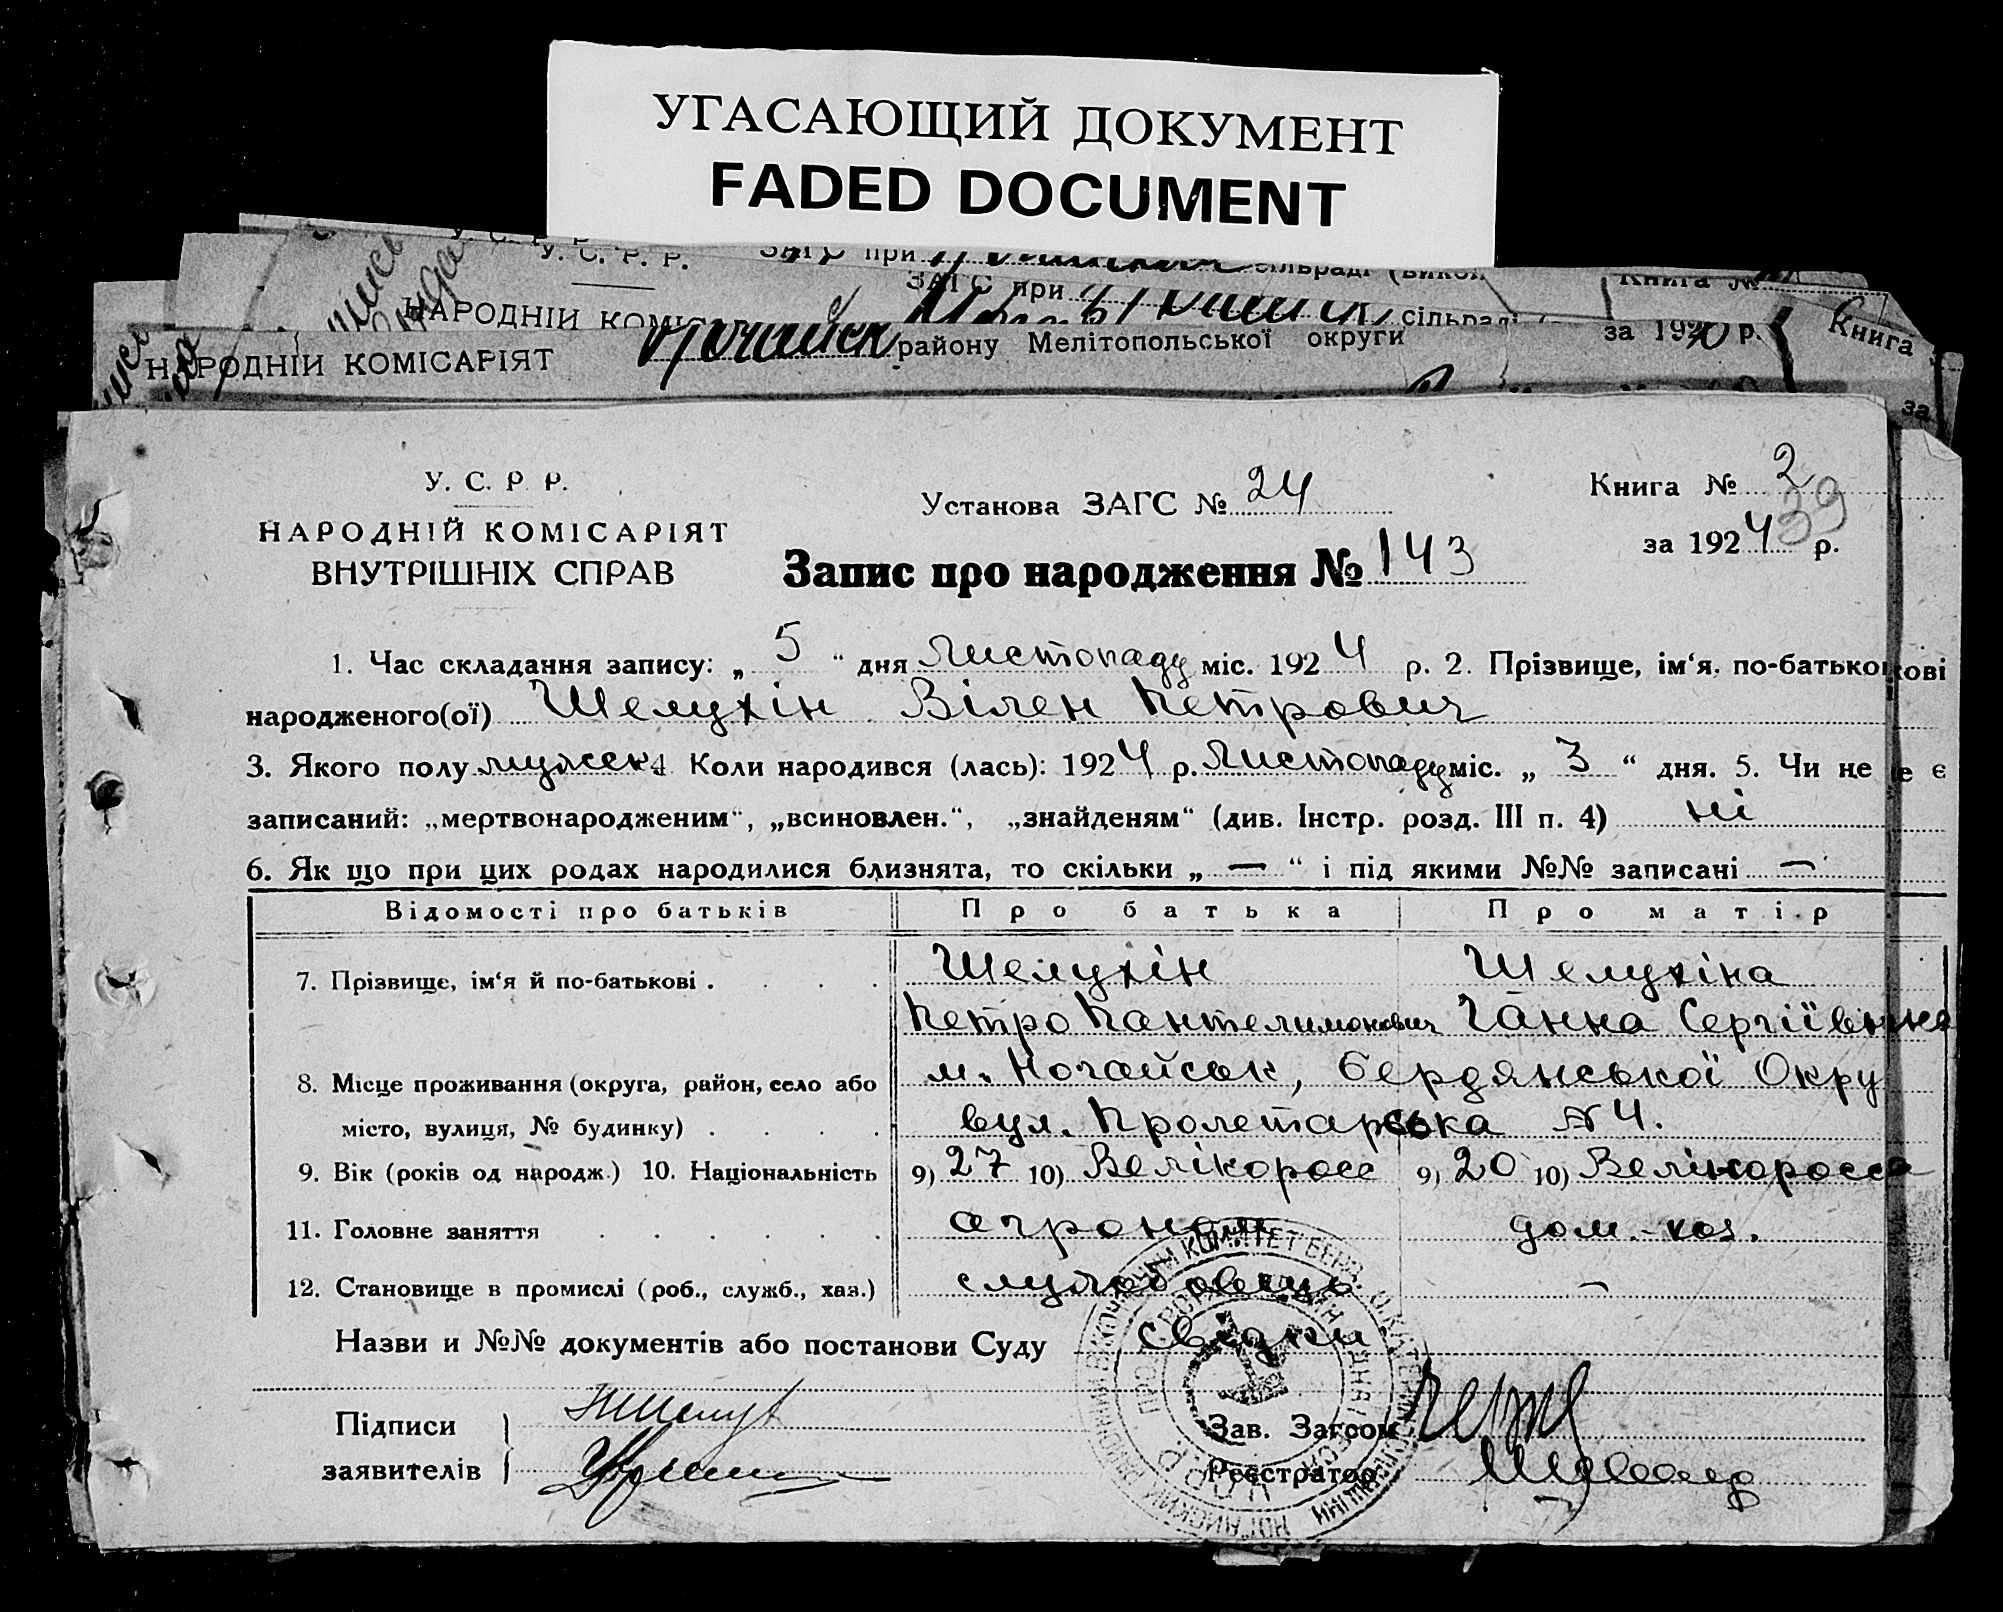 УГАСАЮЩИЙ ДОКУМЕНТ
FADED DOCUMENT
У. С. Р. Р.
ЗАГС при
НАРОДНІЙ
ЗАГС при
сільраді
Книга №
НАРОДНІЙ КОМІСАРІЯТ
району Мелітопольської округи
за 1920 р.
Книга
за
У. С. Р. Р.
НАРОДНІЙ КОМІСАРІЯТ
ВНУТРІШНІХ СПРАВ
Установа ЗАГС № 24
Книга № 2
39
за 1924 р.
Запис про народження № 143
1. Час складання запису: „ 5 “ дня Листопаду міс. 1924 р. 2. Прізвище, ім‘я, по-батькові
народженого(ої) Шелухін Вілен Петрович
3. Якого полу мужеск. 4 Коли народився (лась): 1924 р. Листопаду міс. „ 3 “ дня. 5. Чи не є
записаний: „мертвонародженим“, „всиновлен.“, „знайденям“ (див. Інстр. розд. III п. 4) ні
6. Як що при цих родах народилися близнята, то скільки „ — “ і під якими №№ записані —
Відомості про батьків Про батька Про матір
7. Прізвище, ім‘я й по-батькові . . . . Шелухін Шелухіна
Петро Пантелимонович Ганна Сергіївна
8. Місце проживання (округа, район, село або м. Ногайськ, Бердянської Окру
місто, вулиця, № будинку) . . . . вул. Пролетарська № 4.
9. Вік (років од народж.) 10. Національність 9) 27 10) Велікоросс 9) 20 10) Велікоросса
11. Головне заняття . . . . . . агроном дом.-хоз.
12. Становище в промислі (роб., служб., хаз.) службовець —
Назви и №№ документів або постанови Суду свідки
Підписи
заявителів
Зав. Загсом
Реєстратор